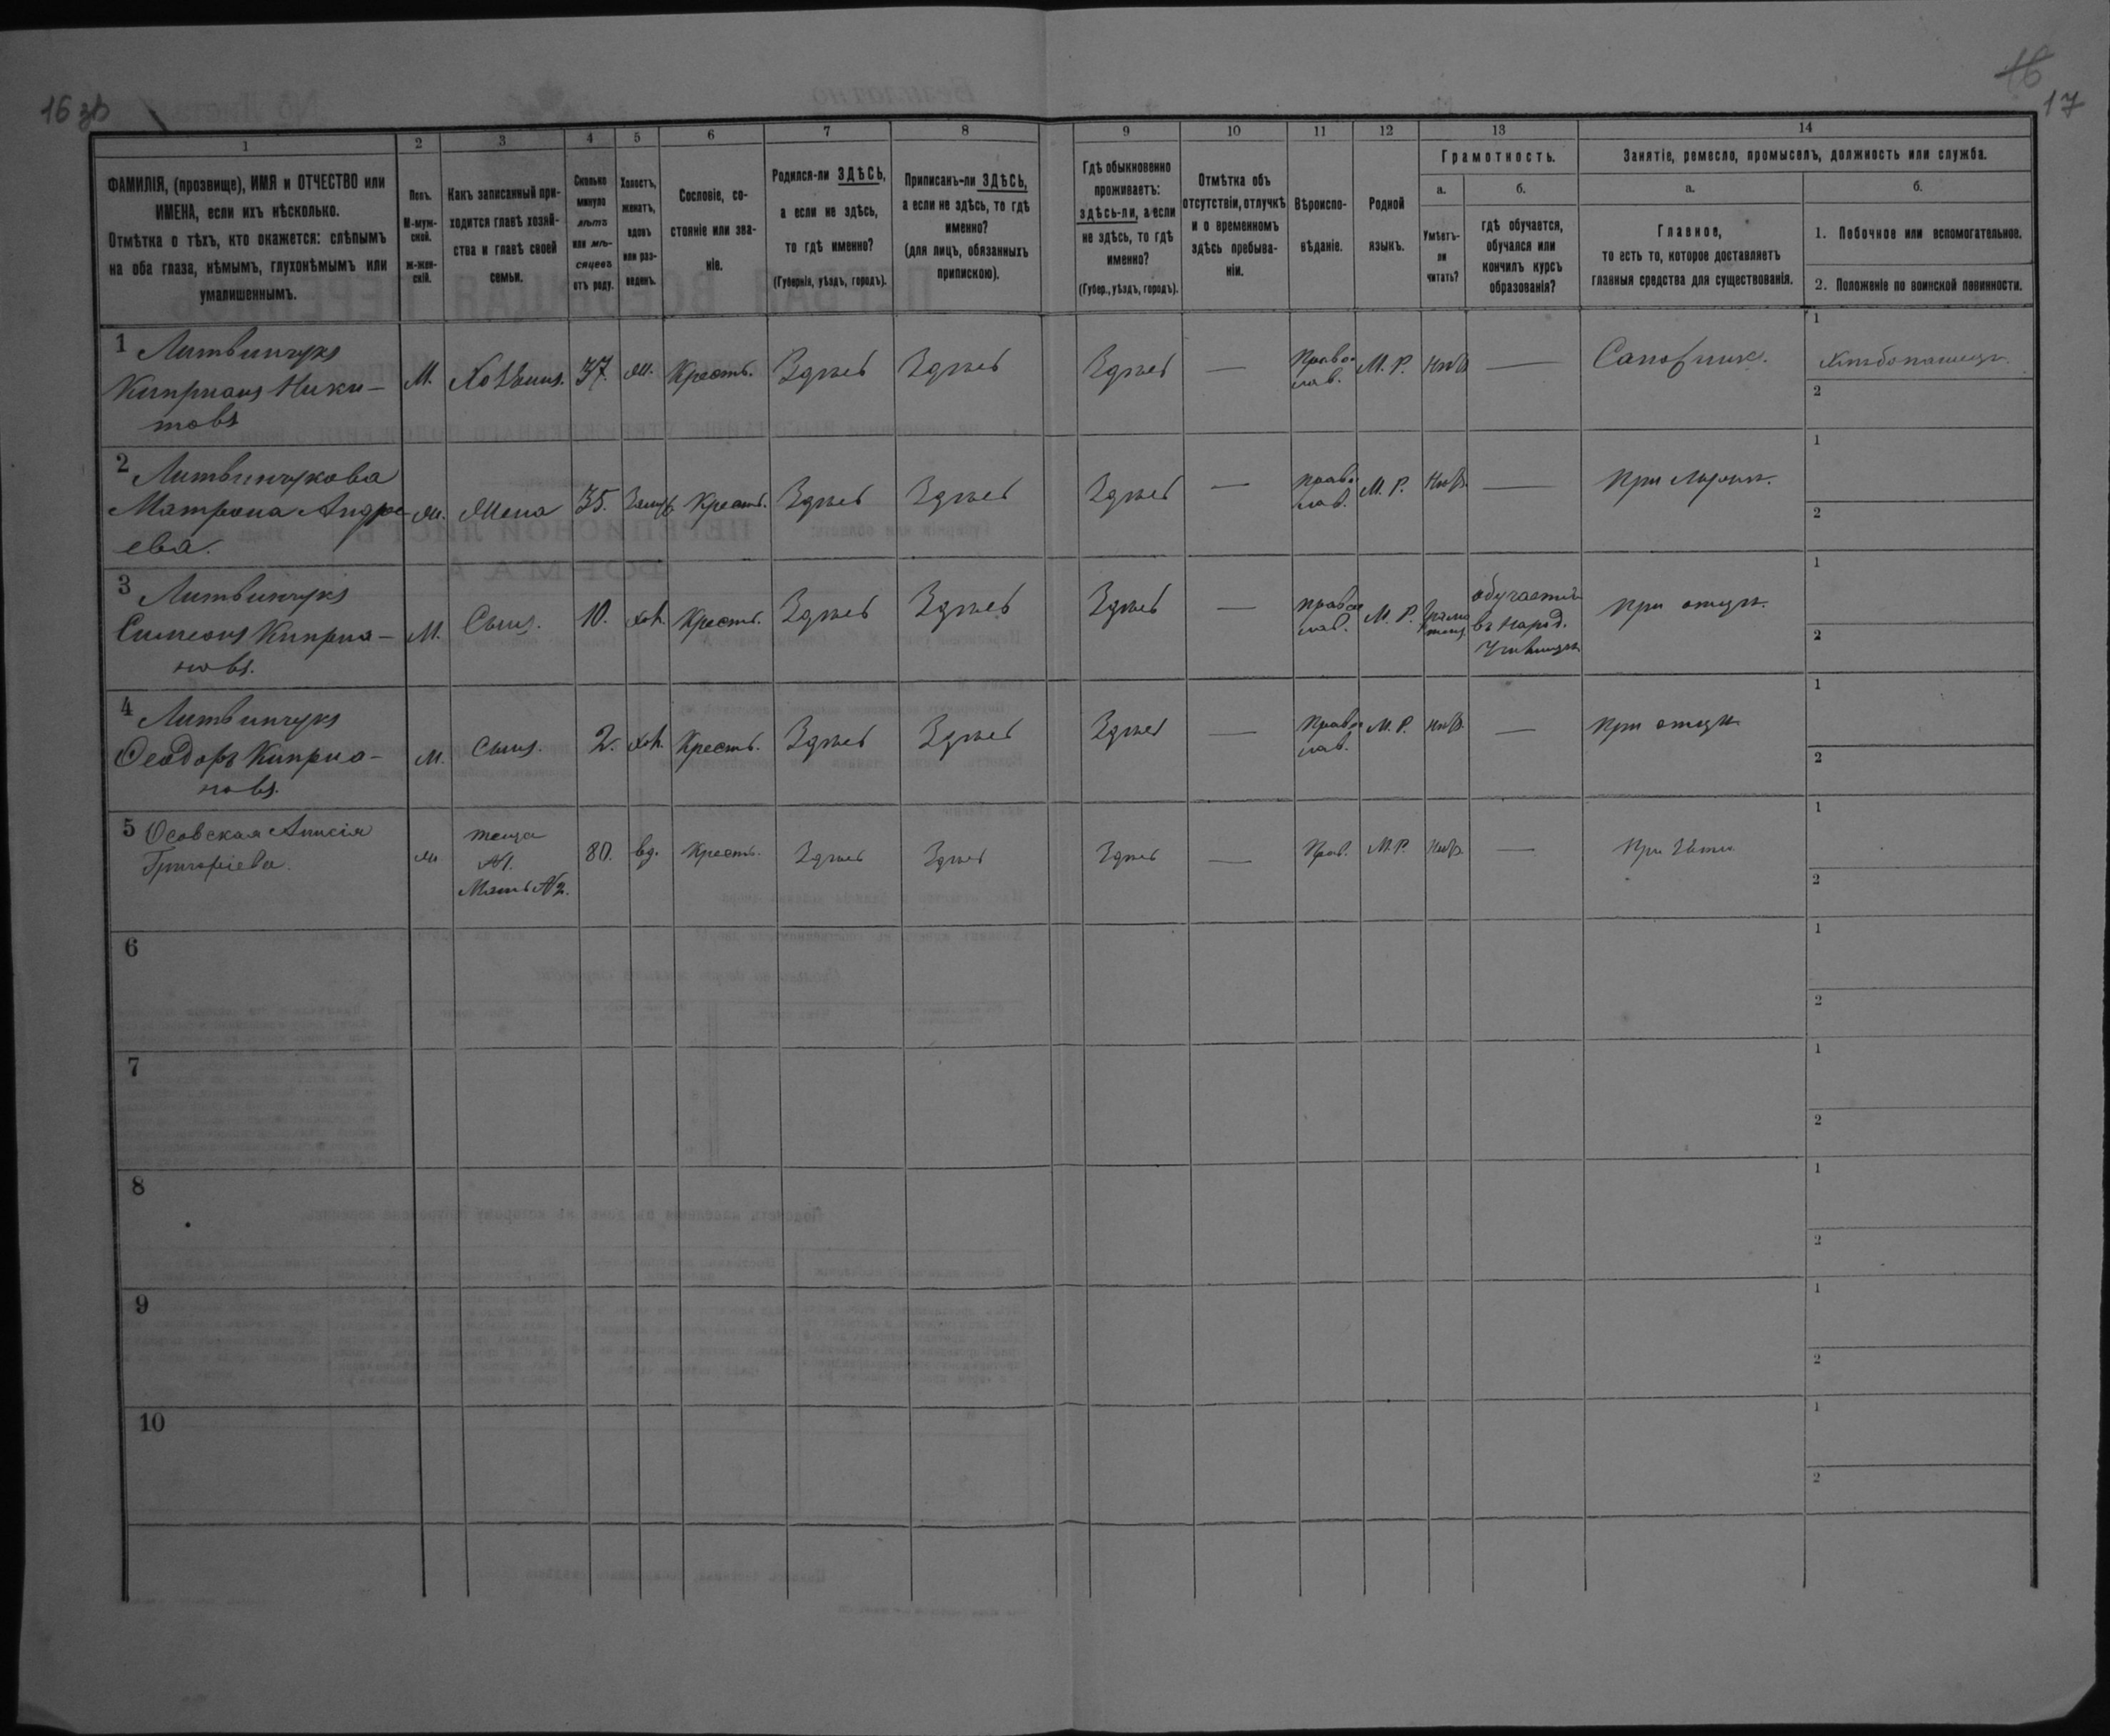 16 зв
16
17
1
2
3
4
5
6
7
8
9
10
11
12
13
14
ФАМИЛІЯ, (прозвище), ИМЯ и ОТЧЕСТВО или
ИМЕНА, если ихъ нѣсколько.
Отмѣтка о тѣхъ, кто окажется: слѣпымъ
на оба глаза, нѣмымъ, глухонѣмымъ или
умалишеннымъ.
Полъ.
М-муж-
ской.
Ж-жен-
скій.
Какъ записанный при-
ходится главѣ хозяй-
ства и главѣ своей
семьи.
Сколько
минуло
лѣтъ
или мѣ-
сяцевъ
отъ роду.
Холостъ,
женатъ,
вдовъ
или раз-
веденъ.
Сословіе, со-
стояніе или зва-
ніе.
Родился-ли ЗДѢСЬ,
а если не здѣсь,
то гдѣ именно?
(Губернія, уѣздъ, городъ).
Приписанъ-ли ЗДѢСЬ,
а если не здѣсь, то гдѣ
именно?
(для лицъ, обязанныхъ
припискою).
Гдѣ обыкновенно
проживаетъ:
здѣсь-ли, а если
не здѣсь, то гдѣ
именно?
(Губер., уѣздъ, городъ).
Отмѣтка объ
отсутствіи, отлучкѣ
и о временномъ
здѣсь пребыва-
ніи.
Вѣроиспо-
вѣданіе.
Родной
языкъ.
Грамотность.
а.
Умѣетъ-
ли
читать?
б.
гдѣ обучается,
обучался или
кончилъ курсъ
образованія?
Занятіе, ремесло, промыселъ, должность или служба.
а.
Главное,
то есть то, которое доставляетъ
главныя средства для существованія.
б.
1. Побочное или вспомогательное.
2. Положеніе по воинской повинности.
1 Литвинчукъ
Кипріанъ Ники-
товъ
М. Хозяинъ. 37. Ж. Крестъ. Здѣсь Здѣсь Здѣсь — Право-
слав. М. Р. Нѣтъ — Сапожник. Хлѣбопашецъ.
1
2
2 Литвинчукова
Матрона Андре-
ева.
Ж. Жена 35. Замуж. Крестъ. Здѣсь Здѣсь Здѣсь — Право-
слав. М. Р. Нѣтъ — При мужѣ.
1
2
3 Литвинчукъ
Симеонъ Кипріа-
новъ.
М. Сынъ. 10. хол. Крестъ. Здѣсь Здѣсь Здѣсь — Право-
слав. М. Р. Грамо-
тенъ обучается
въ Народ.
Училищѣ При отцѣ.
1
2
4 Литвинчукъ
Ѳеодоръ Кипріа-
новъ.
М. Сынъ. 2. хол. Крестъ. Здѣсь Здѣсь Здѣсь — Право-
слав. М. Р. Нѣтъ. — При отцѣ
1
2
5 Осовская Анисія
Григоріева.
Ж теща
№1.
Мать №2.
80. вд. Крестъ. Здѣсь Здѣсь Здѣсь — Прав. М. Р. Нѣтъ. — При зятѣ.
1
2
6
1
2
7
1
2
8
1
2
9
1
2
10
1
2